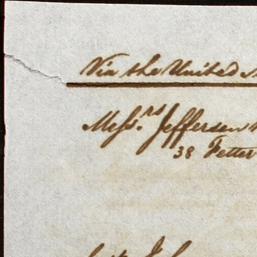 Via the United
Messrs Jefferson
38 Fetter